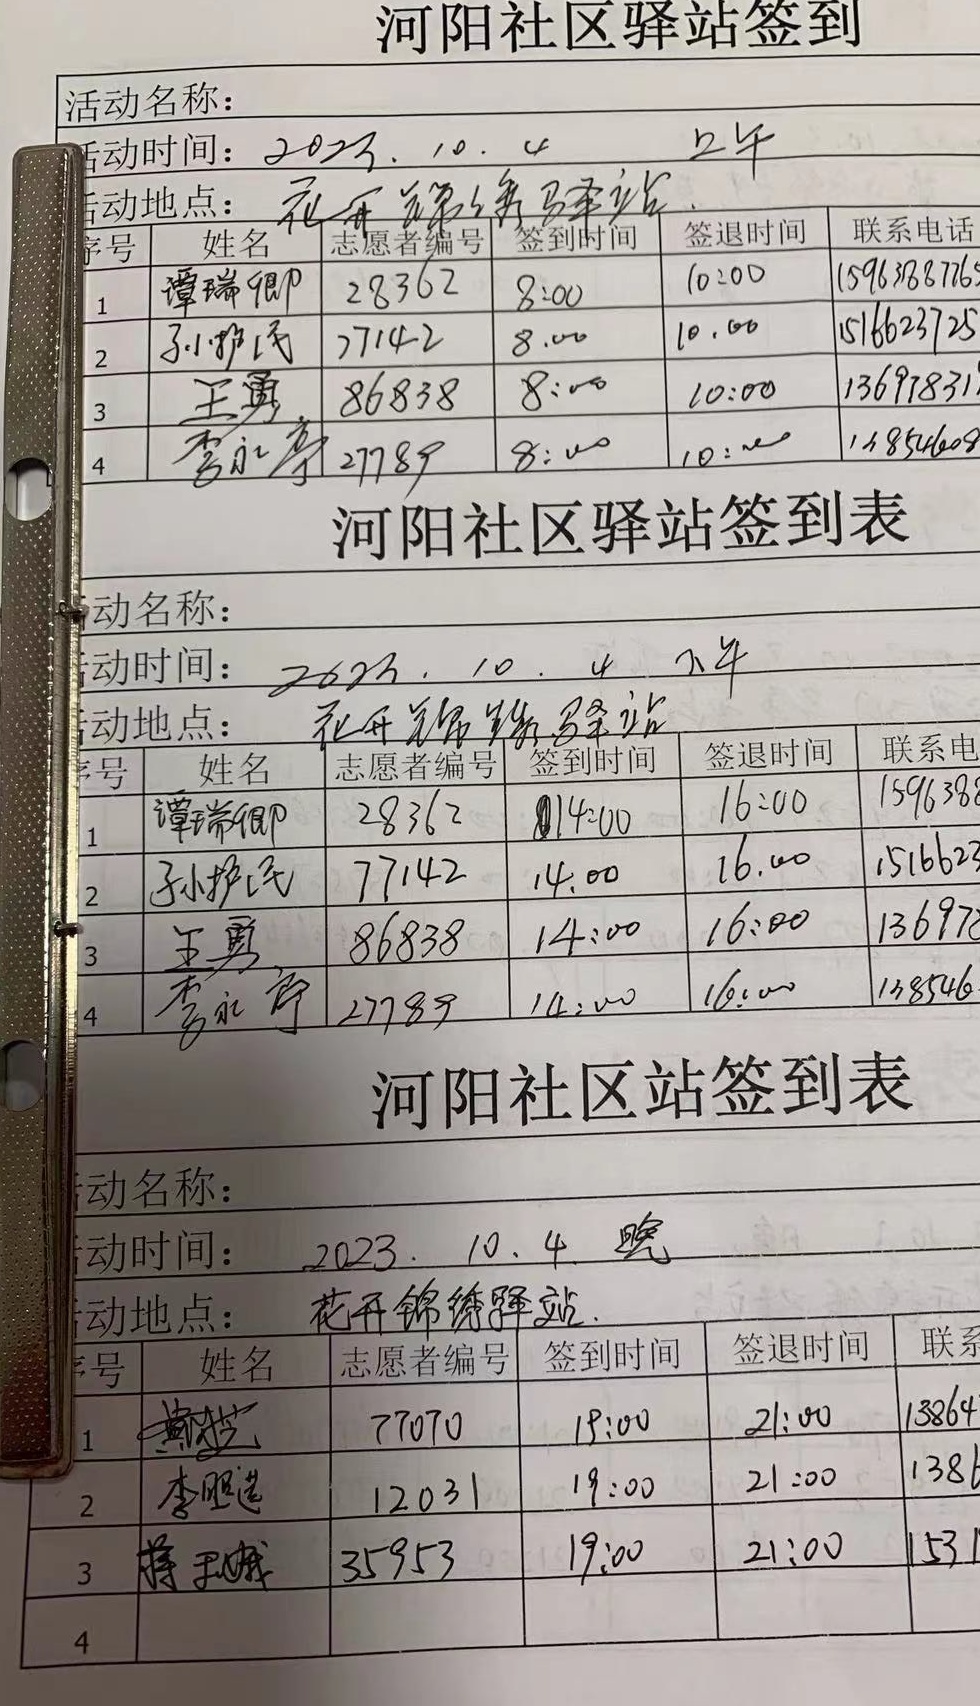 河阳社区驿站签到
活动名称：
活动时间：2023.10.4 上午
活动地点：花开锦绣驿站.
序号 姓名 志愿者编号 签到时间 签退时间 联系电话
1 谭瑞卿 28362 8:00 10:00
2 孙护民 77142 8.00 10.00 1516623725
3 王勇 86838 8:00 10:00 13697831
4 李永亭 27789 8:00 10:00 13854608
河阳社区驿站签到表
活动名称：
活动时间：2023.10.4 下午
活动地点：花开锦绣驿站
序号 姓名 志愿者编号 签到时间 签退时间 联系电
1 谭瑞卿 28362 14:00 16:00 1596388
2 孙护民 77142 14.00 16.00 1516623
3 王勇 86838 14:00 16:00 136978
4 李永亭 27789 14:00 16:00 138546
河阳社区站签到表
活动名称：
活动时间：2023.10.4 晚
活动地点：花开锦绣驿站.
序号 姓名 志愿者编号 签到时间 签退时间 联系
1 77070 19:00 21:00 13864
2 12031 19:00 21:00 138
3 35953 19:00 21:00 1531
4